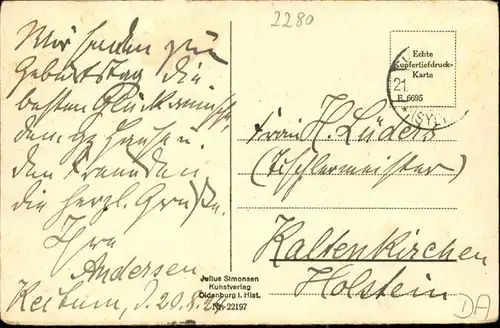 2280
Wir senden zum
Geburtstag die
besten Glückwünsche
dem Hause u.
den Freunden
die herzl. Grüße.
Ihre
Andersen
Keitum, d. 20.8.
Echte
Kupfertiefdruck-
Karte
E 6695
21.
(SYLT
Frau H. Lüders
(Tischlermeister)
Kaltenkirchen
Holstein
Julius Simonsen
Kunstverlag
Oldenburg i. Hlst.
Nr. 22197
DA